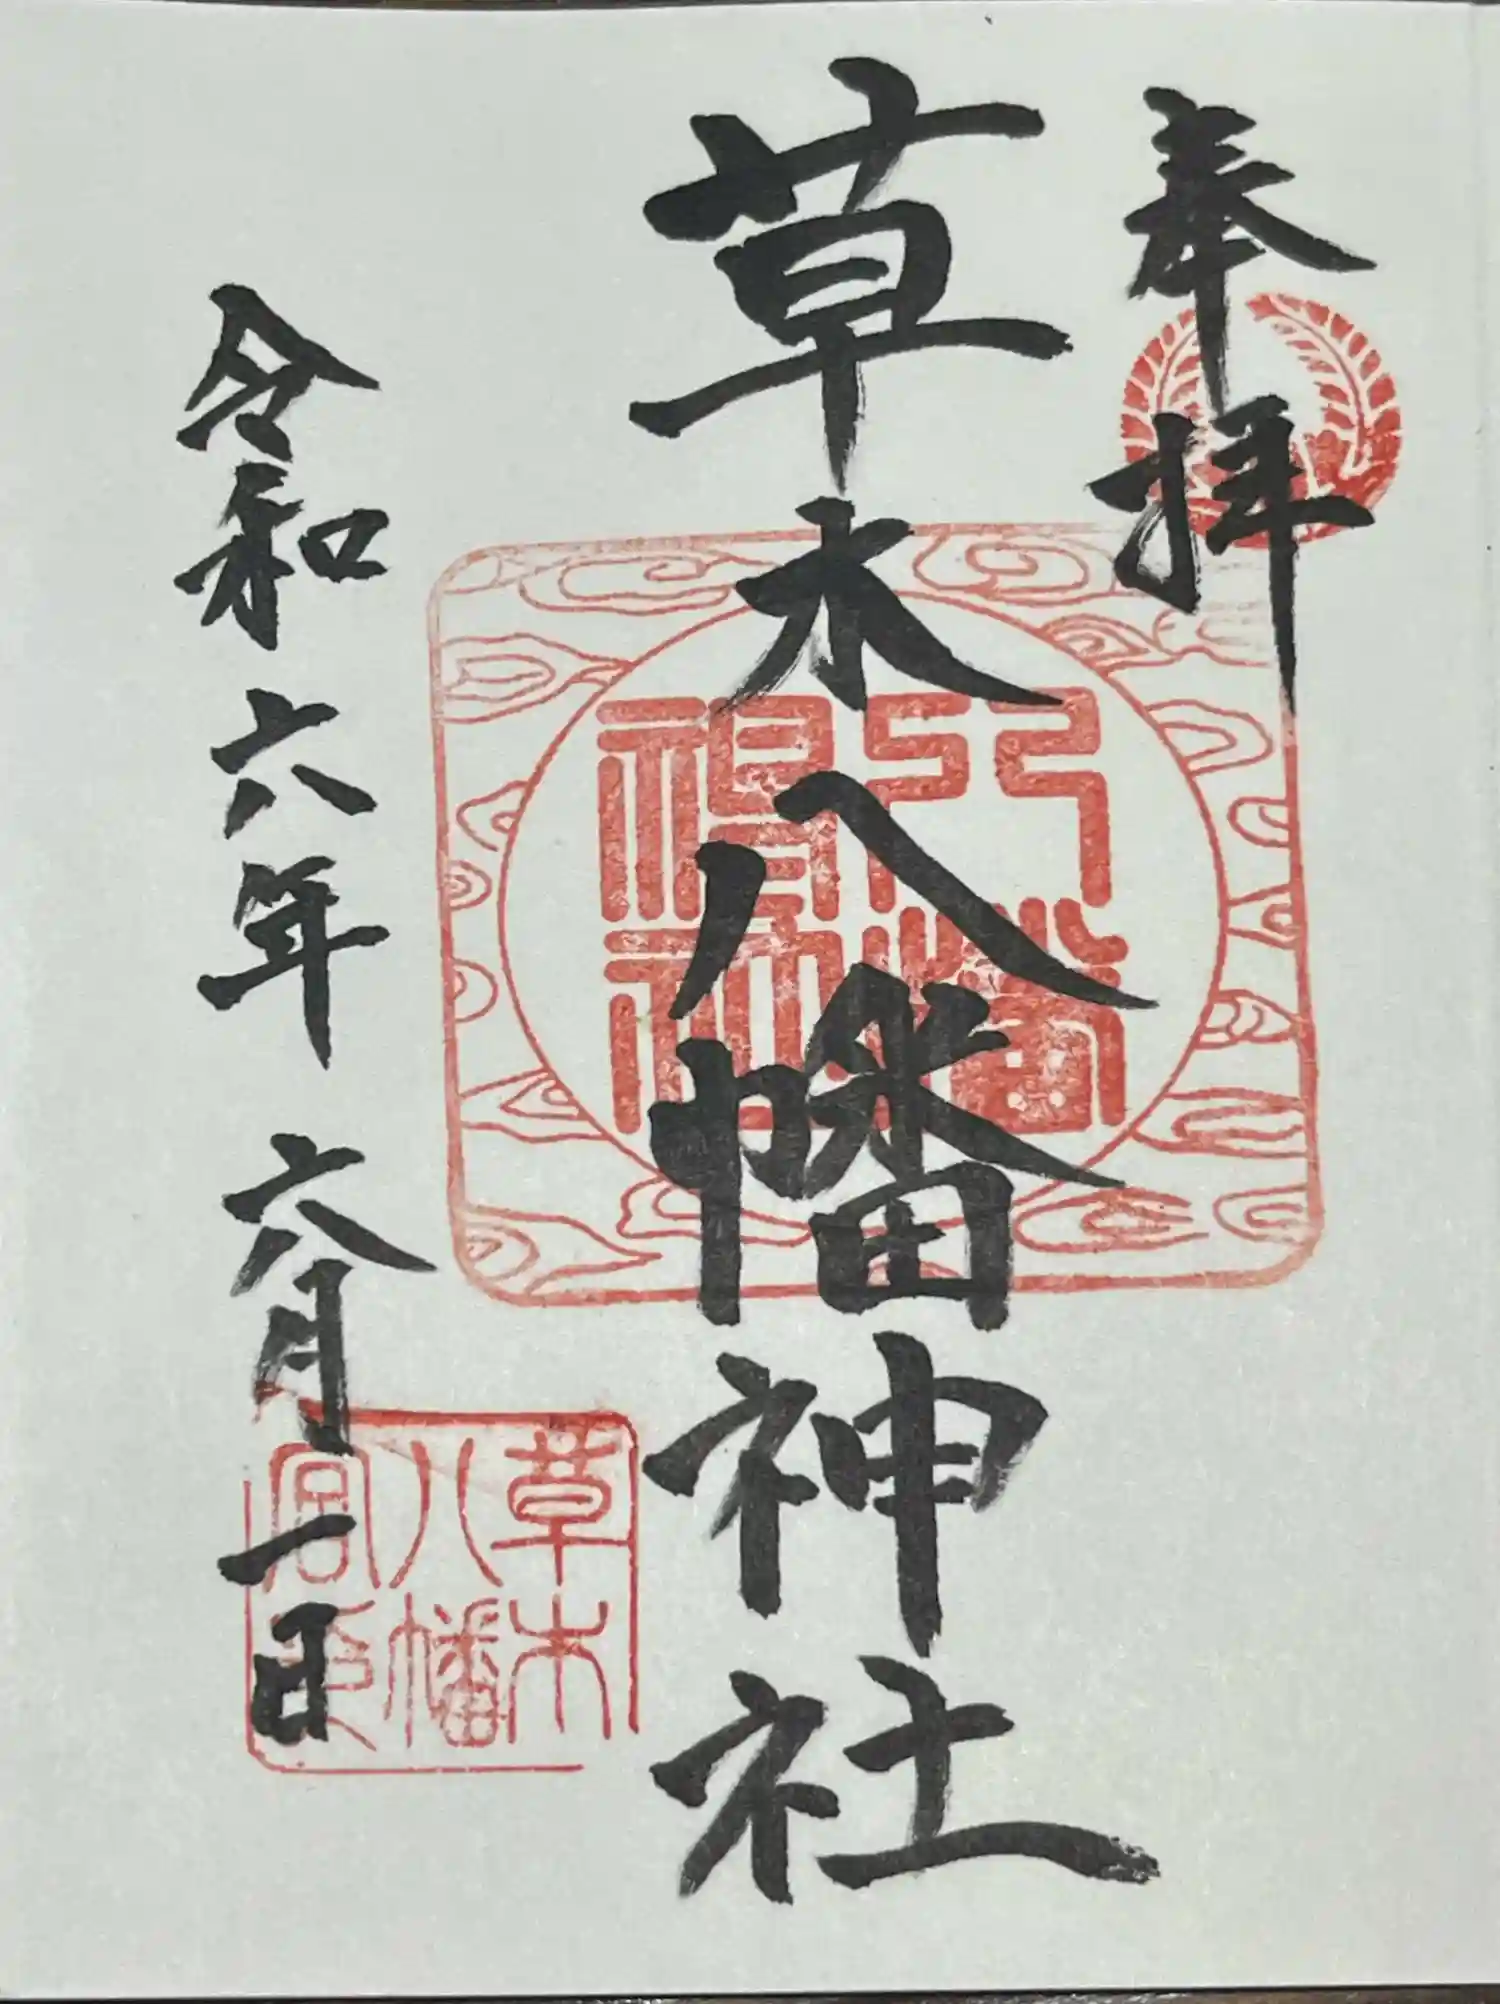 奉拝
草木八幡神社
八幡神社
令和六年六月一日
草木八幡宮印